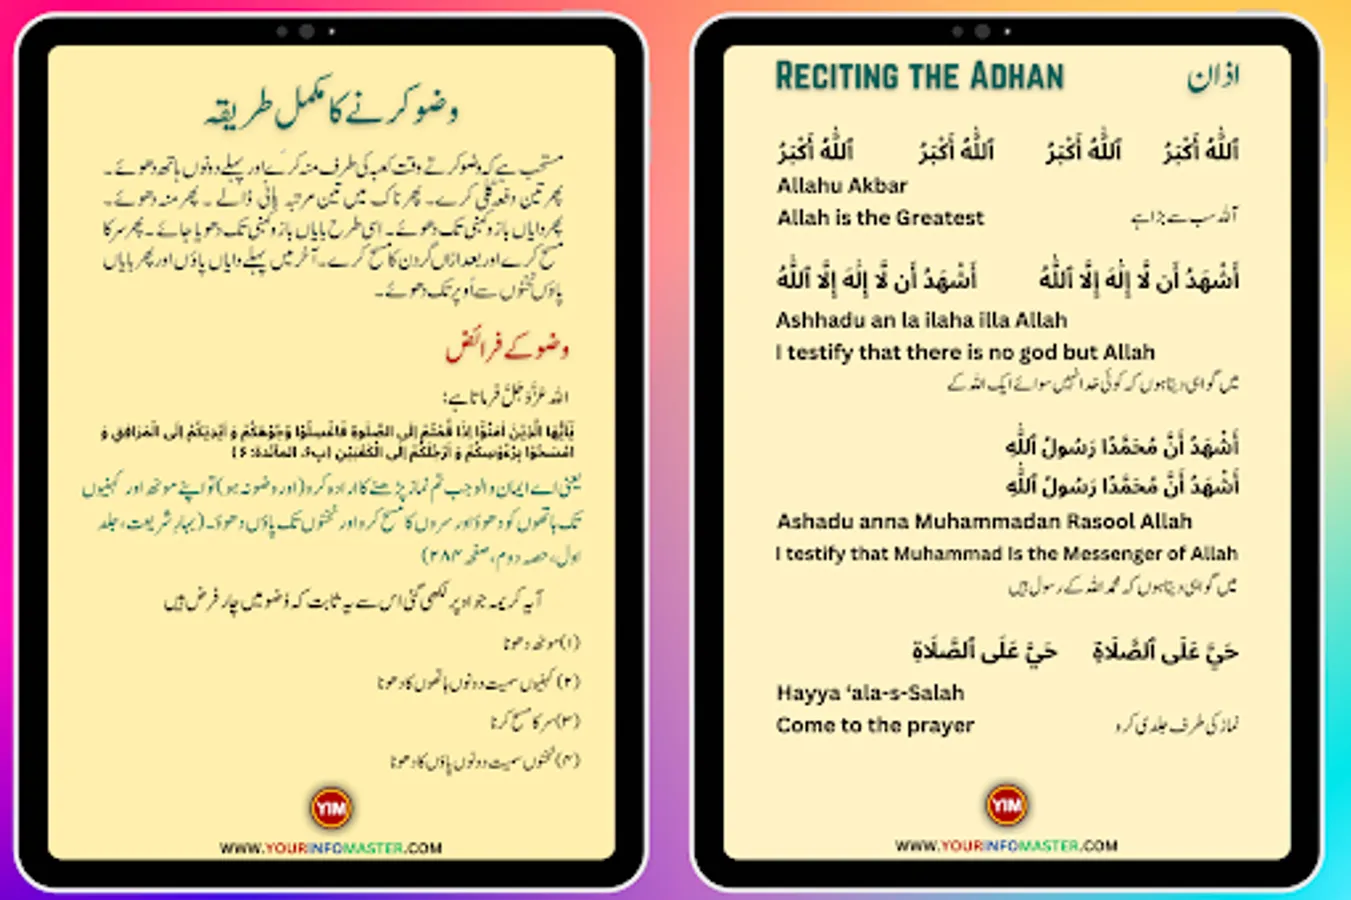 وضو کرنے کا مکمل طریقہ
مستحب ہے کہ وضو کرتے وقت کعبہ کی طرف منہ کرے اور پہلے دونوں ہاتھ دھوئے۔
پھر تین دفعہ کلّی کرے۔ پھر ناک میں تین مرتبہ پانی ڈالے۔ پھر منہ دھوئے۔
پھر دایاں بازو کہنی تک دھوئے۔ اسی طرح بایاں بازو کہنی تک دھویا جائے۔ پھر سر کا
مسح کرے اور بعد ازاں گردن کا مسح کرے۔ آخر میں پہلے دایاں پاؤں اور پھر بایاں
پاؤں ٹخنوں سے اُوپر تک دھوئے۔
وضو کے فرائض
اللہ عَزَّوَجَلَّ فرماتا ہے:
یٰۤاَیُّهَا الَّذِیْنَ اٰمَنُوْۤا اِذَا قُمْتُمْ اِلَى الصَّلٰوةِ فَاغْسِلُوْا وُجُوْهَكُمْ وَ اَیْدِیَكُمْ اِلَى الْمَرَافِقِ وَ
امْسَحُوْا بِرُءُوْسِكُمْ وَ اَرْجُلَكُمْ اِلَى الْكَعْبَیْنِ (پ۶، المآئدة: ۶)
یعنی اے ایمان والو جب تم نماز پڑھنے کا ارادہ کرو (اور وضو نہ ہو) تو اپنے مونھ اور کہنیوں
تک ہاتھوں کو دھوؤ اور سروں کا مسح کرو اور ٹخنوں تک پاؤں دھوؤ۔ (بہارِ شریعت، جلد
اول، حصہ دوم، صفحہ ۲۸۴)
آیہ کریمہ جو اوپر لکھی گئی اس سے یہ ثابت کہ وُضو میں چار فرض ہیں
(۱) مونھ دھونا
(۲) کہنیوں سمیت دونوں ہاتھوں کا دھونا
(۳) سر کا مسح کرنا
(۴) ٹخنوں سمیت دونوں پاؤں کا دھونا
YIM
WWW.YOURINFOMASTER.COM
RECITING THE ADHAN اذان
ٱللَّٰهُ أَكْبَرُ ٱللَّٰهُ أَكْبَرُ ٱللَّٰهُ أَكْبَرُ ٱللَّٰهُ أَكْبَرُ
Allahu Akbar
Allah is the Greatest اللہ سب سے بڑا ہے
أَشْهَدُ أَن لَّا إِلَٰهَ إِلَّا ٱللَّٰهُ أَشْهَدُ أَن لَّا إِلَٰهَ إِلَّا ٱللَّٰهُ
Ashhadu an la ilaha illa Allah
I testify that there is no god but Allah
میں گواہی دیتا ہوں کہ کوئی خدا نہیں سوائے ایک اللہ کے
أَشْهَدُ أَنَّ مُحَمَّدًا رَسُولُ ٱللَّٰهِ
أَشْهَدُ أَنَّ مُحَمَّدًا رَسُولُ ٱللَّٰهِ
Ashadu anna Muhammadan Rasool Allah
I testify that Muhammad Is the Messenger of Allah
میں گواہی دیتا ہوں کہ محمد اللہ کے رسول ہیں
حَيَّ عَلَى ٱلصَّلَاةِ حَيَّ عَلَى ٱلصَّلَاةِ
Hayya ‘ala-s-Salah
Come to the prayer نماز کی طرف جلدی کرو
YIM
WWW.YOURINFOMASTER.COM